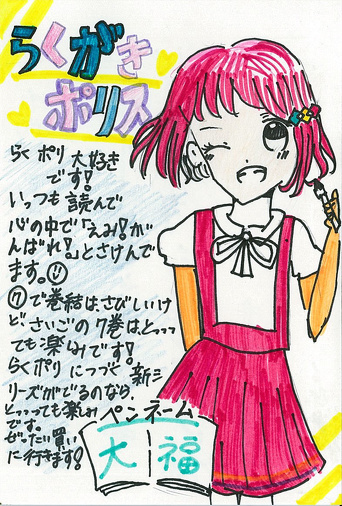 らくがき
ポリス
らくポリ大好き
です!
いっつも読んで
心の中で「えみ!が
んばれ!」とさけんで
ます。
⑦で巻結は、さびしいけ
ど、さいごの7巻はとっっっ
ても楽しみです!
らくポリにつづく新シ
リーズがでるのなら、
とっっっても楽しみ
です。
ぜったい買い
に行きます!
ペンネーム
大福